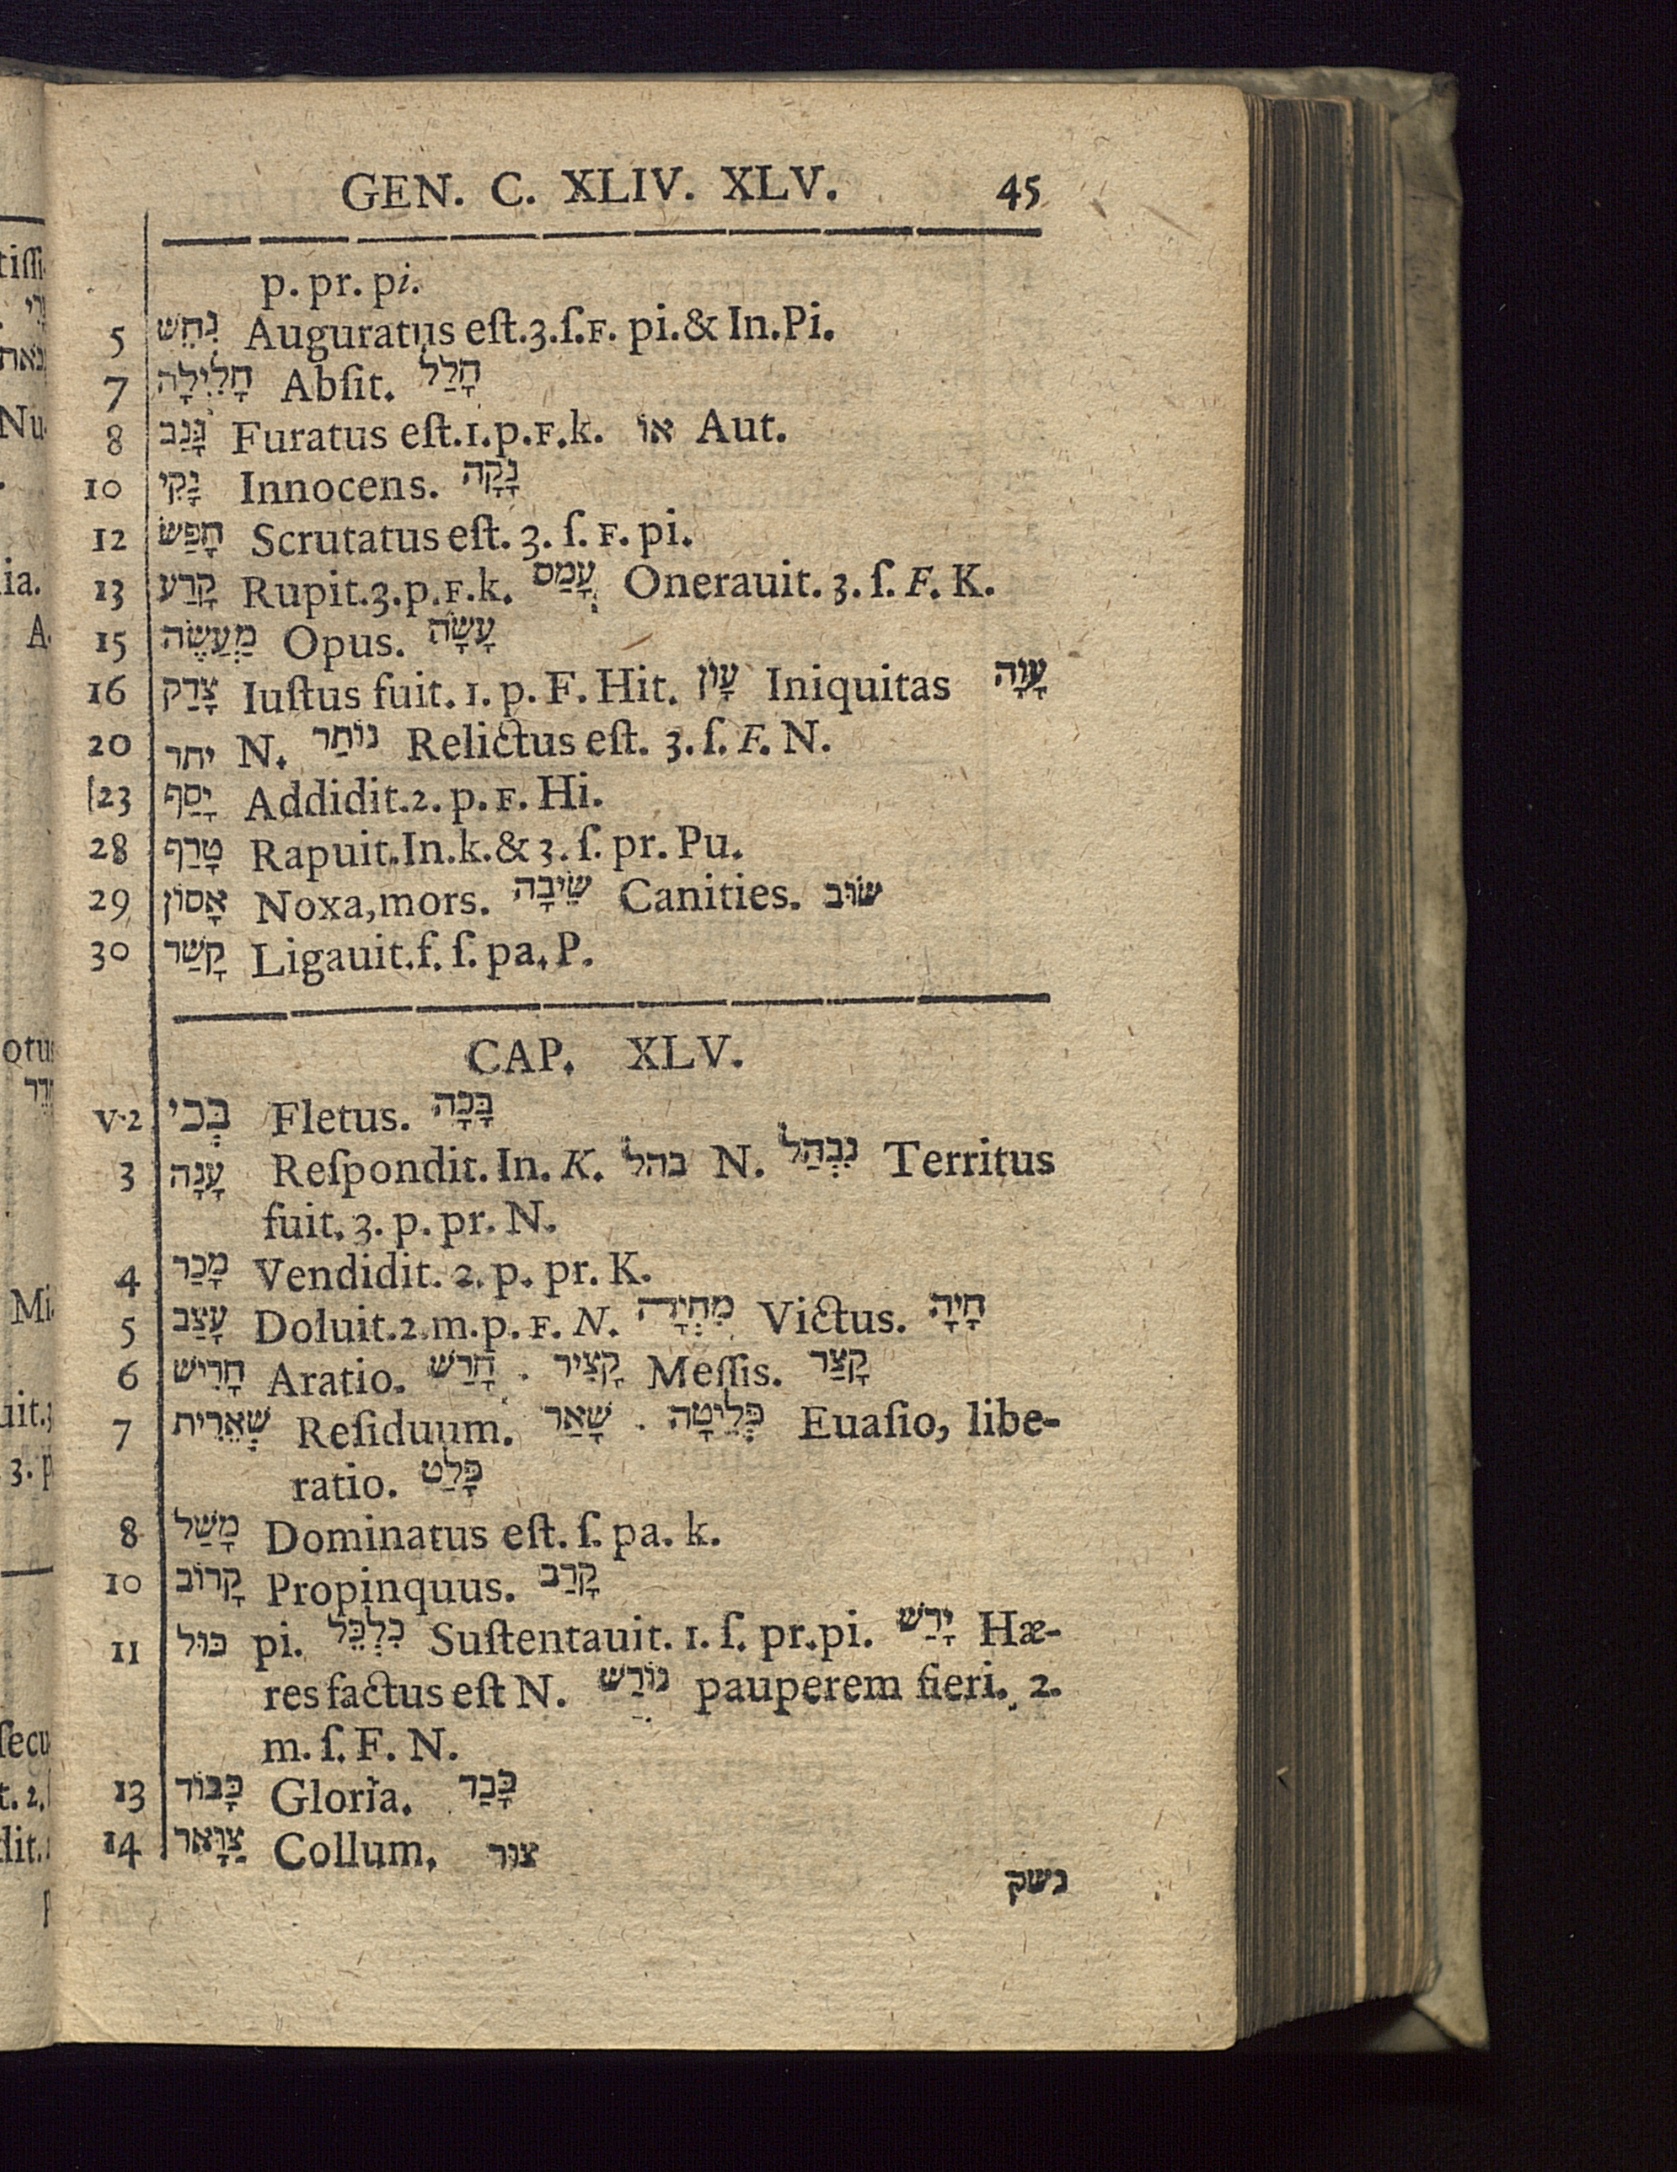 GEN. C. XLIV. XLV. 45
p. pr. pi.
5 נִחֵשׁ Auguratus eſt.3.ſ.F. pi.& In.Pi.
7 חָלִילָה Abſit. חָלַל
8 גָּנַב Furatus eſt.1.p.F.k. אוֹ Aut.
10 נָקִי Innocens. נָקָה
12 חָפַשׂ Scrutatus eſt. 3. ſ. F. pi.
13 קָרַע Rupit.3.p.F.k. עָמַס Onerauit. 3. ſ. F. K.
15 מַעֲשֶׂה Opus. עָשָׂה
16 צָדַק Iuſtus fuit. 1. p. F. Hit. עָוֹן Iniquitas עָוָה
20 יתר N. נוֹתַר Relictus eſt. 3. ſ. F. N.
23 יָסַף Addidit.2. p. F. Hi.
28 טָרַף Rapuit.In.k.& 3. ſ. pr. Pu.
29 אָסוֹן Noxa,mors. שֵׂיבָה Canities. שׂוּב
30 קָשַׁר Ligauit.f. ſ. pa. P.
CAP. XLV.
V.2 בְּכִי Fletus. בָּכָה
3 עָנָה Reſpondit. In. K. בהל N. נִבְהַל Territus
fuit. 3. p. pr. N.
4 מָכַר Vendidit. 2. p. pr. K.
5 עָצַב Doluit.2.m.p. F. N. מִחְיָה Victus. חָיָה
6 חָרִישׁ Aratio. חָרַשׁ . קָצִיר Meſſis. קָצַר
7 שְׁאֵרִית Reſiduum. שָׁאַר . פְּלֵיטָה Euaſio, libe-
ratio. פָּלַט
8 מָשַׁל Dominatus eſt. ſ. pa. k.
10 קָרוֹב Propinquus. קָרַב
11 כּוּל pi. כִּלְכֵּל Suſtentauit. 1. ſ. pr.pi. יָרַשׁ Hæ-
res factus eſt N. נוֹרַשׁ pauperem fieri. 2.
m. ſ. F. N.
13 כָּבוֹד Gloria. כָּבַד
14 צַוָּאר Collum. צור
נשק